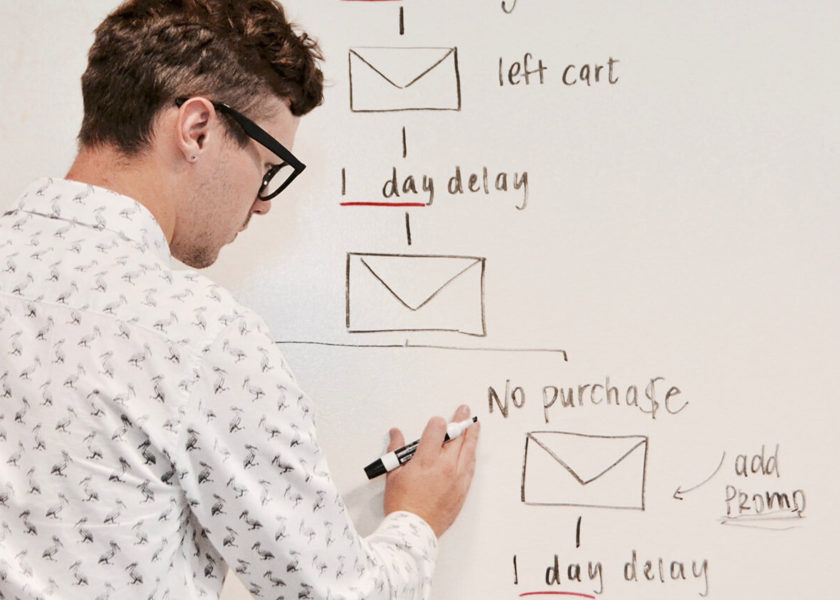 left cart
1 day delay
No purcha$e
add
PROMO
1 day delay